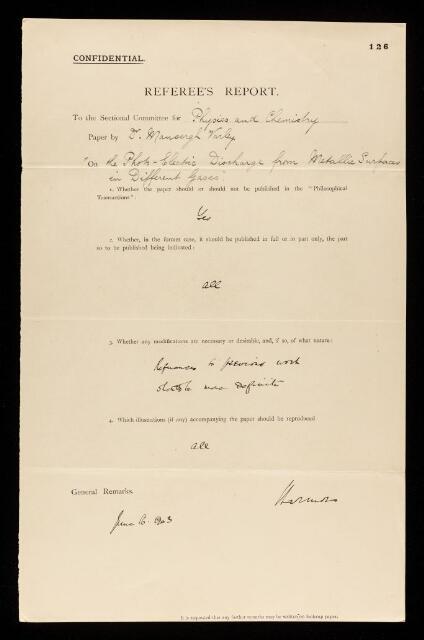 126
CONFIDENTIAL.
REFEREE'S REPORT.
To the Sectional Committee for Physics and Chemistry
Paper by W. Mansergh Varley
"On the Photo-Electric Discharge from Metallic Surfaces
in Different Gases."
1. Whether the paper should or should not be published in the "Philosophical
Transactions":
Yes
2. Whether, in the former case, it should be published in full or in part only, the part
so to be published being indicated:
all
3. Whether any modifications are necessary or desirable, and, if so, of what nature:
References to previous work
should be more definite
4. Which illustrations (if any) accompanying the paper should be reproduced
all
General Remarks.
June 6. 1903
It is requested that any further remarks may be written on foolscap paper.